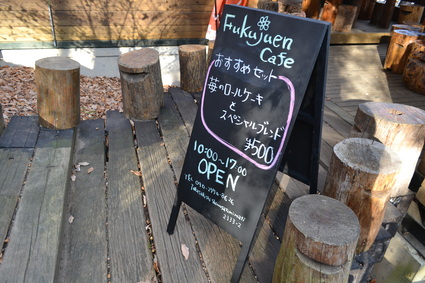 Fukujuen
Cafe
おすすめセット
苺のロールケーキ
と
スペシャルブレンド
¥500
10:00〜17:00
OPEN
2333-2